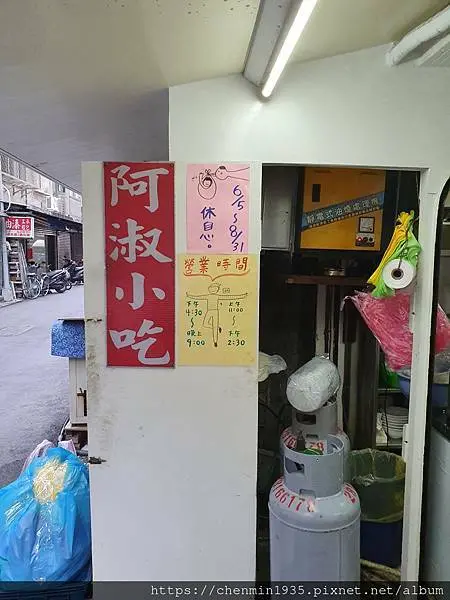 阿淑小吃
6/5~8/31
休息!
營業時間
上午
11:00
~
下午
2:30
下午
4:30
~
晚上
9:00
靜電式油煙處理機
https://chenmin1935.pixnet.net/album